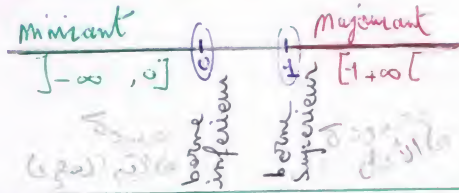 minirant
Majeurant
]-∞ , 0]
0
1
[1 +∞ [
borne
inférieur
borne
supérieur